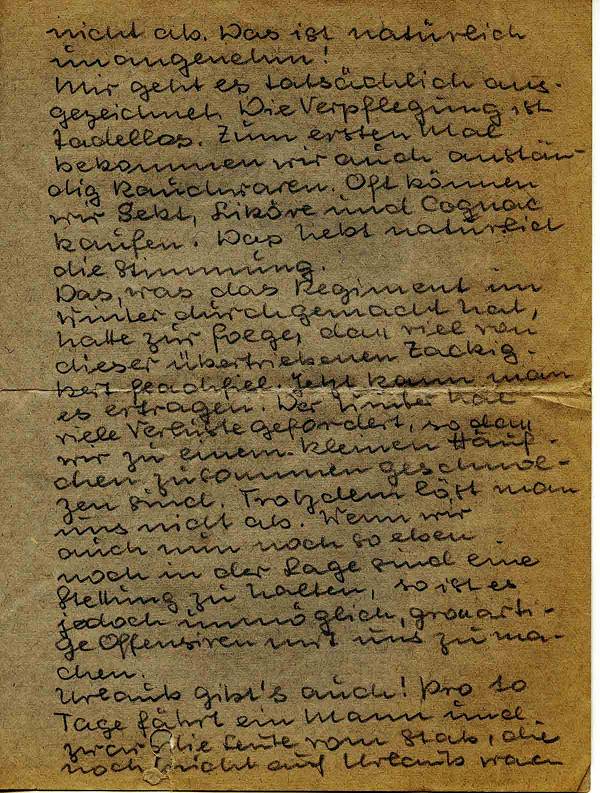 nicht ab. Das ist natürlich
unangenehm!
Mir geht es tatsächlich aus-
gezeichnet. Die Verpflegung ist
tadellos. Zum ersten Mal
bekommen wir auch anstän-
dig Rauchwaren. Oft können
wir Sekt, Liköre und Cognac
kaufen. Das hebt natürlich
die Stimmung.
Das, was das Regiment im
Winter durchgemacht hat,
hatte zur Folge, daß viel von
dieser übertriebenen Zackig-
keit abfiel. Jetzt kann man
es ertragen. Der Winter hat
viele Verluste gefordert, so daß
wir zu einem kleinen Häuf-
chen zusammen geschmol-
zen sind. Trotzdem löst man
uns nicht ab. Wenn wir
auch nun noch so eben
noch in der Lage sind eine
Stellung zu halten, so ist es
jedoch unmöglich, großarti-
ge Offensiven mit uns zu ma-
chen.
Urlaub gibt's auch! Pro 10
Tage fährt ein Mann und
zwar die Leute vom Stab, die
noch nicht auf Urlaub waren